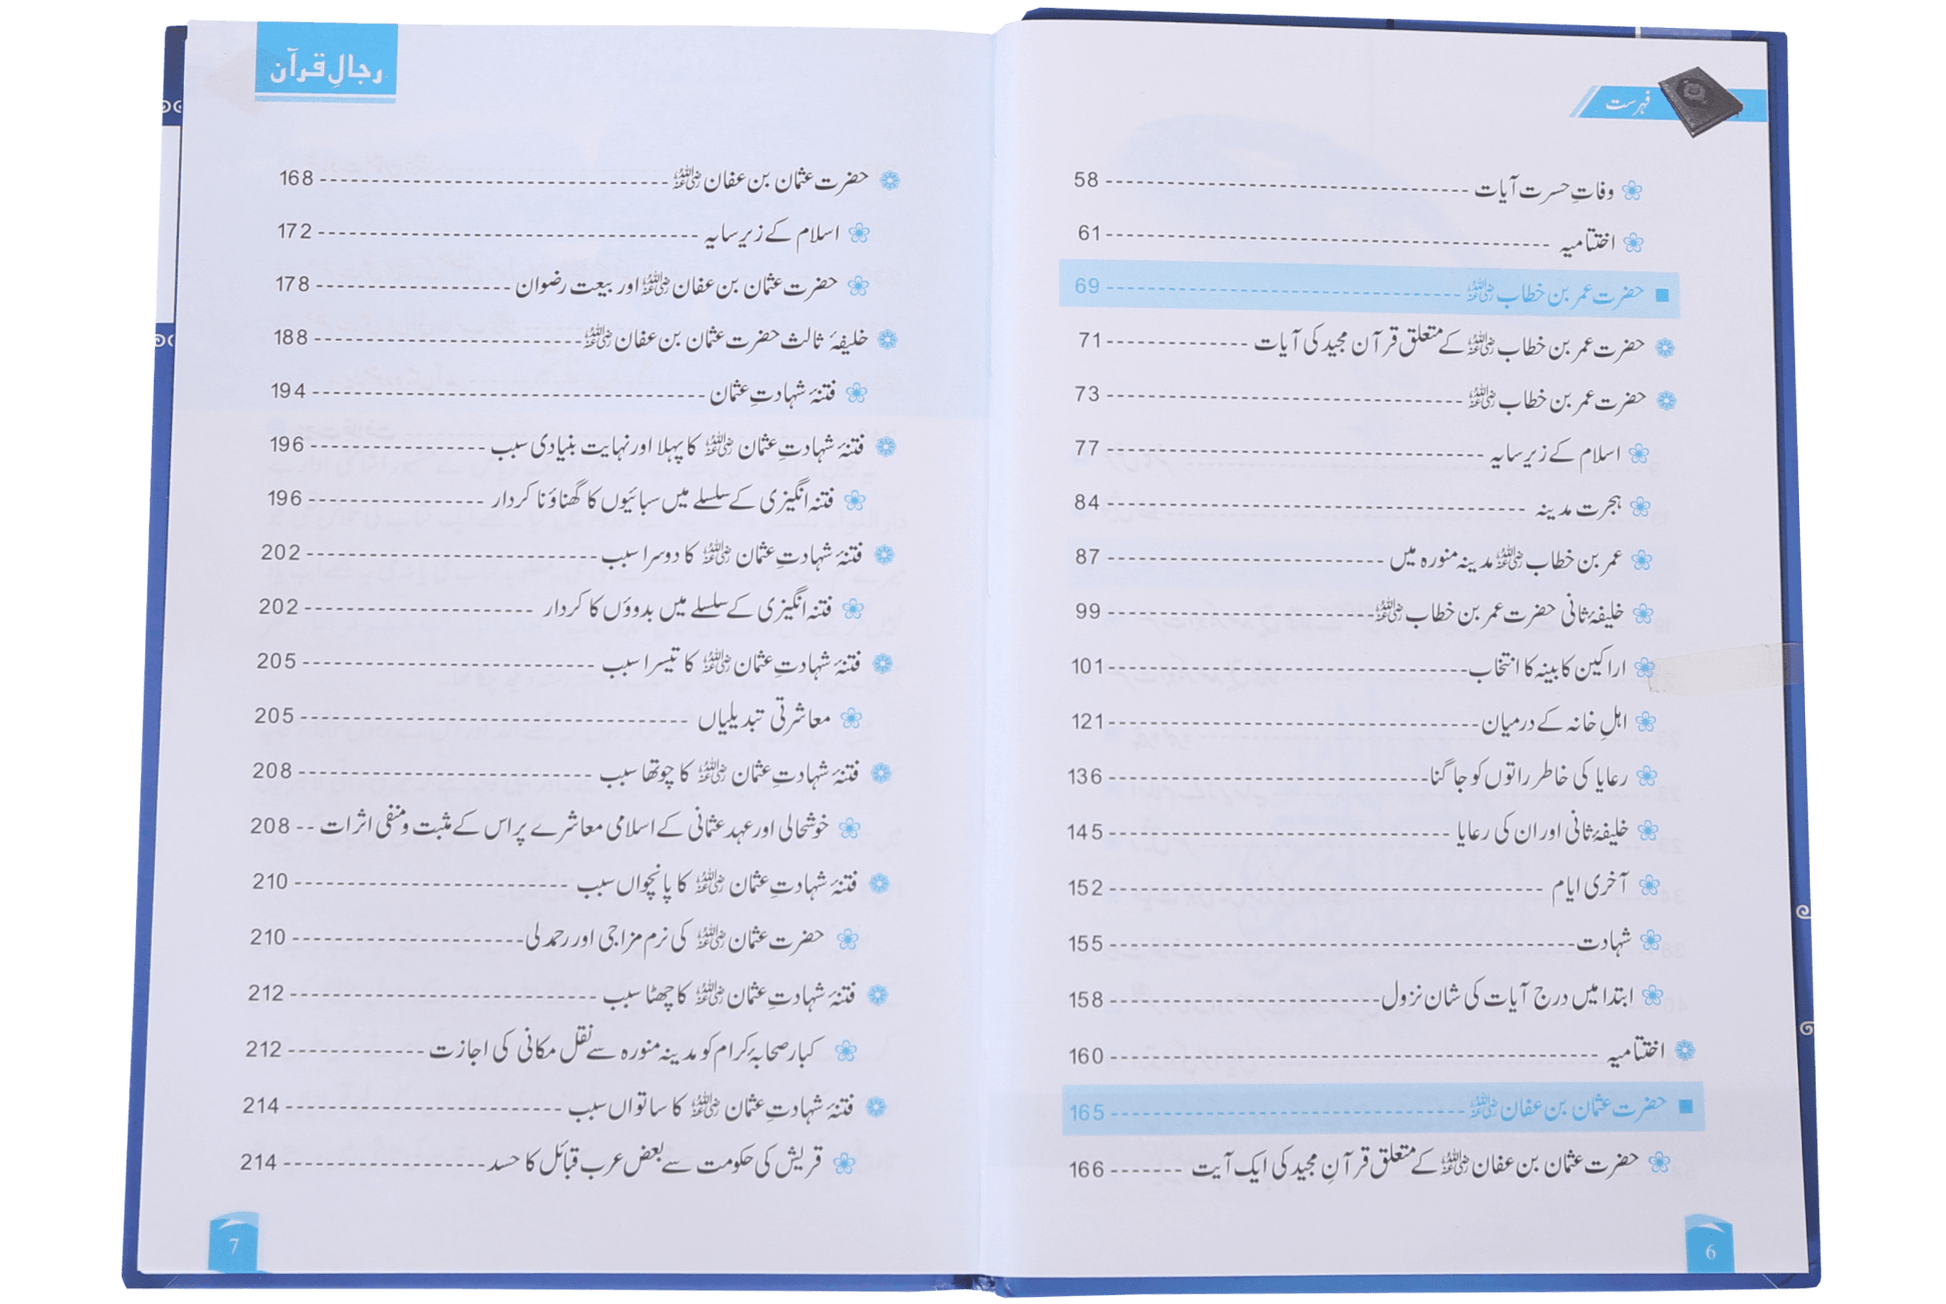 فہرست
وفاتِ حسرت آیات ---------- 58
اختتامیہ ---------- 61
حضرت عمر بن خطاب رضی اللہ عنہ ---------- 69
حضرت عمر بن خطاب رضی اللہ عنہ کے متعلق قرآن مجید کی آیات ---------- 71
حضرت عمر بن خطاب رضی اللہ عنہ ---------- 73
اسلام کے زیر سایہ ---------- 77
ہجرت مدینہ ---------- 84
عمر بن خطاب رضی اللہ عنہ مدینہ منورہ میں ---------- 87
خلیفۂ ثانی حضرت عمر بن خطاب رضی اللہ عنہ ---------- 99
اراکین کابینہ کا انتخاب ---------- 101
اہلِ خانہ کے درمیان ---------- 121
رعایا کی خاطر راتوں کو جاگنا ---------- 136
خلیفۂ ثانی اور ان کی رعایا ---------- 145
آخری ایام ---------- 152
شہادت ---------- 155
ابتدا میں درج آیات کی شان نزول ---------- 158
اختتامیہ ---------- 160
حضرت عثمان بن عفان رضی اللہ عنہ ---------- 165
حضرت عثمان بن عفان رضی اللہ عنہ کے متعلق قرآنِ مجید کی ایک آیت ---------- 166
6
رجالِ قرآن
حضرت عثمان بن عفان رضی اللہ عنہ ---------- 168
اسلام کے زیر سایہ ---------- 172
حضرت عثمان بن عفان رضی اللہ عنہ اور بیعت رضوان ---------- 178
خلیفۂ ثالث حضرت عثمان بن عفان رضی اللہ عنہ ---------- 188
فتنۂ شہادتِ عثمان ---------- 194
فتنۂ شہادتِ عثمان رضی اللہ عنہ کا پہلا اور نہایت بنیادی سبب ---------- 196
فتنہ انگیزی کے سلسلے میں سبائیوں کا گھناؤنا کردار ---------- 196
فتنۂ شہادتِ عثمان رضی اللہ عنہ کا دوسرا سبب ---------- 202
فتنہ انگیزی کے سلسلے میں بدوؤں کا کردار ---------- 202
فتنۂ شہادتِ عثمان رضی اللہ عنہ کا تیسرا سبب ---------- 205
معاشرتی تبدیلیاں ---------- 205
فتنۂ شہادتِ عثمان رضی اللہ عنہ کا چوتھا سبب ---------- 208
خوشحالی اور عہد عثمانی کے اسلامی معاشرے پر اس کے مثبت و منفی اثرات -- 208
فتنۂ شہادتِ عثمان رضی اللہ عنہ کا پانچواں سبب ---------- 210
حضرت عثمان رضی اللہ عنہ کی نرم مزاجی اور رحمدلی ---------- 210
فتنۂ شہادتِ عثمان رضی اللہ عنہ کا چھٹا سبب ---------- 212
کبار صحابۂ کرام کو مدینہ منورہ سے نقل مکانی کی اجازت ---------- 212
فتنۂ شہادتِ عثمان رضی اللہ عنہ کا ساتواں سبب ---------- 214
قریش کی حکومت سے بعض عرب قبائل کا حسد ---------- 214
7